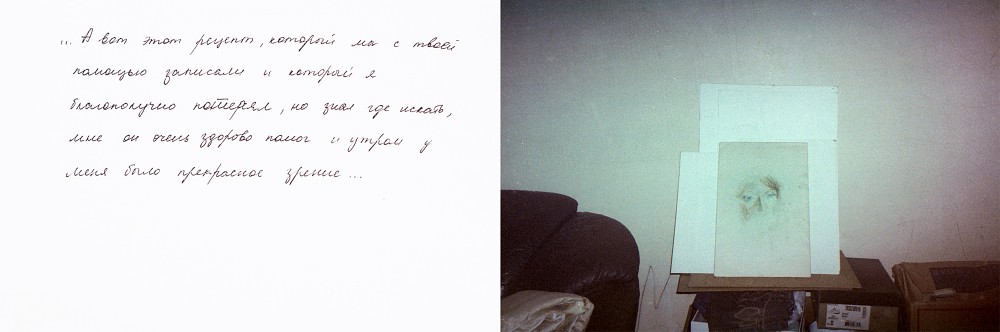 ... А вот этот рецепт, который мы с твоей
помощью записали и который я
благополучно потерял, но знал где искать,
мне он очень здорово помог и утром у
меня было прекрасное зрение...